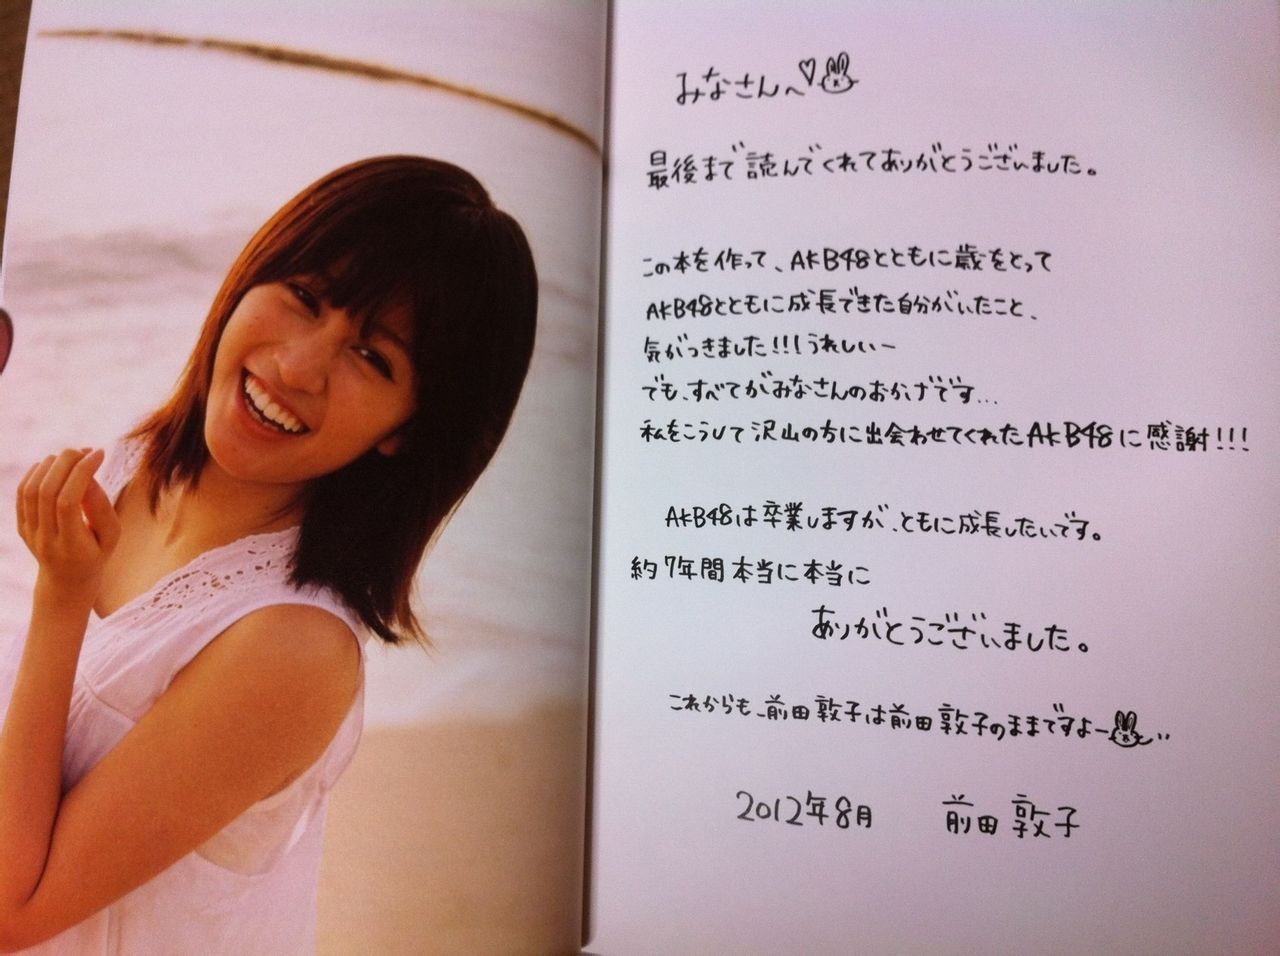 みなさんへ♡
最後まで読んでくれてありがとうございました。
この本を作って、AKB48とともに歳をとって
AKB48とともに成長できた自分がいたこと、
気がつきました!!!うれしいー
でも、すべてがみなさんのおかげです...
私をこうして沢山の方に出会わせてくれたAKB48に感謝!!!
AKB48は卒業しますが、ともに成長したいです。
約7年間本当に本当に
ありがとうございました。
これからも、前田敦子は前田敦子のままですよー
2012年8月 前田敦子